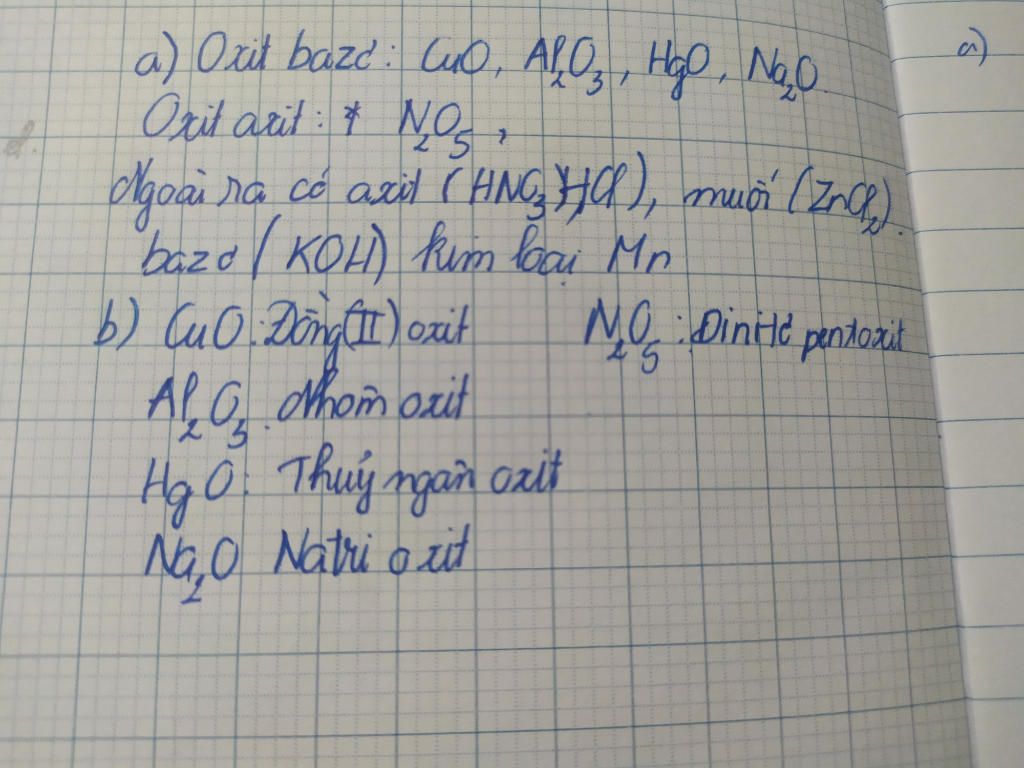 a) Oxit bazơ: CuO, Al2O3, HgO, Na2O.
a)
Oxit axit: * N2O5,
Ngoài ra có axit (HNO3, HCl), muối (ZnCl2).
bazơ (KOH) kim loại Mn
b) CuO: Đồng(II) oxit N2O5: Đinitơ pentoxit
Al2O3: Nhôm oxit
HgO: Thuỷ ngân oxit
Na2O Natri oxit